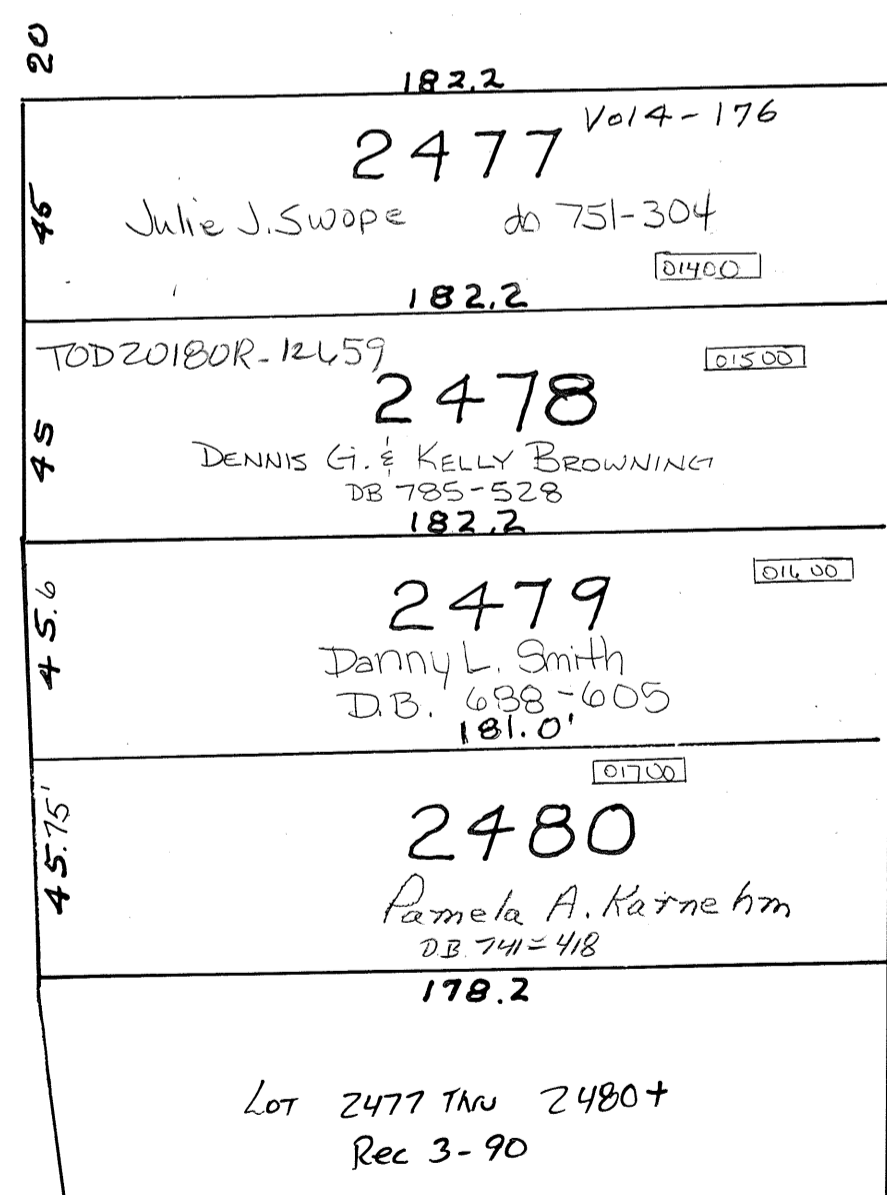 20
182.2
2477 Vol 4-176
45
Julie J. Swope do 751-304
01400
182.2
TOD 20180R-12659
01500
2478
45
DENNIS G. & KELLY BROWNING
DB 785-528
182.2
01600
45.6
2479
Danny L. Smith
D.B. 688-605
181.0'
01700
45.75'
2480
Pamela A. Karnehm
D.B. 741=418
178.2
LOT 2477 THRU 2480+
Rec 3-90